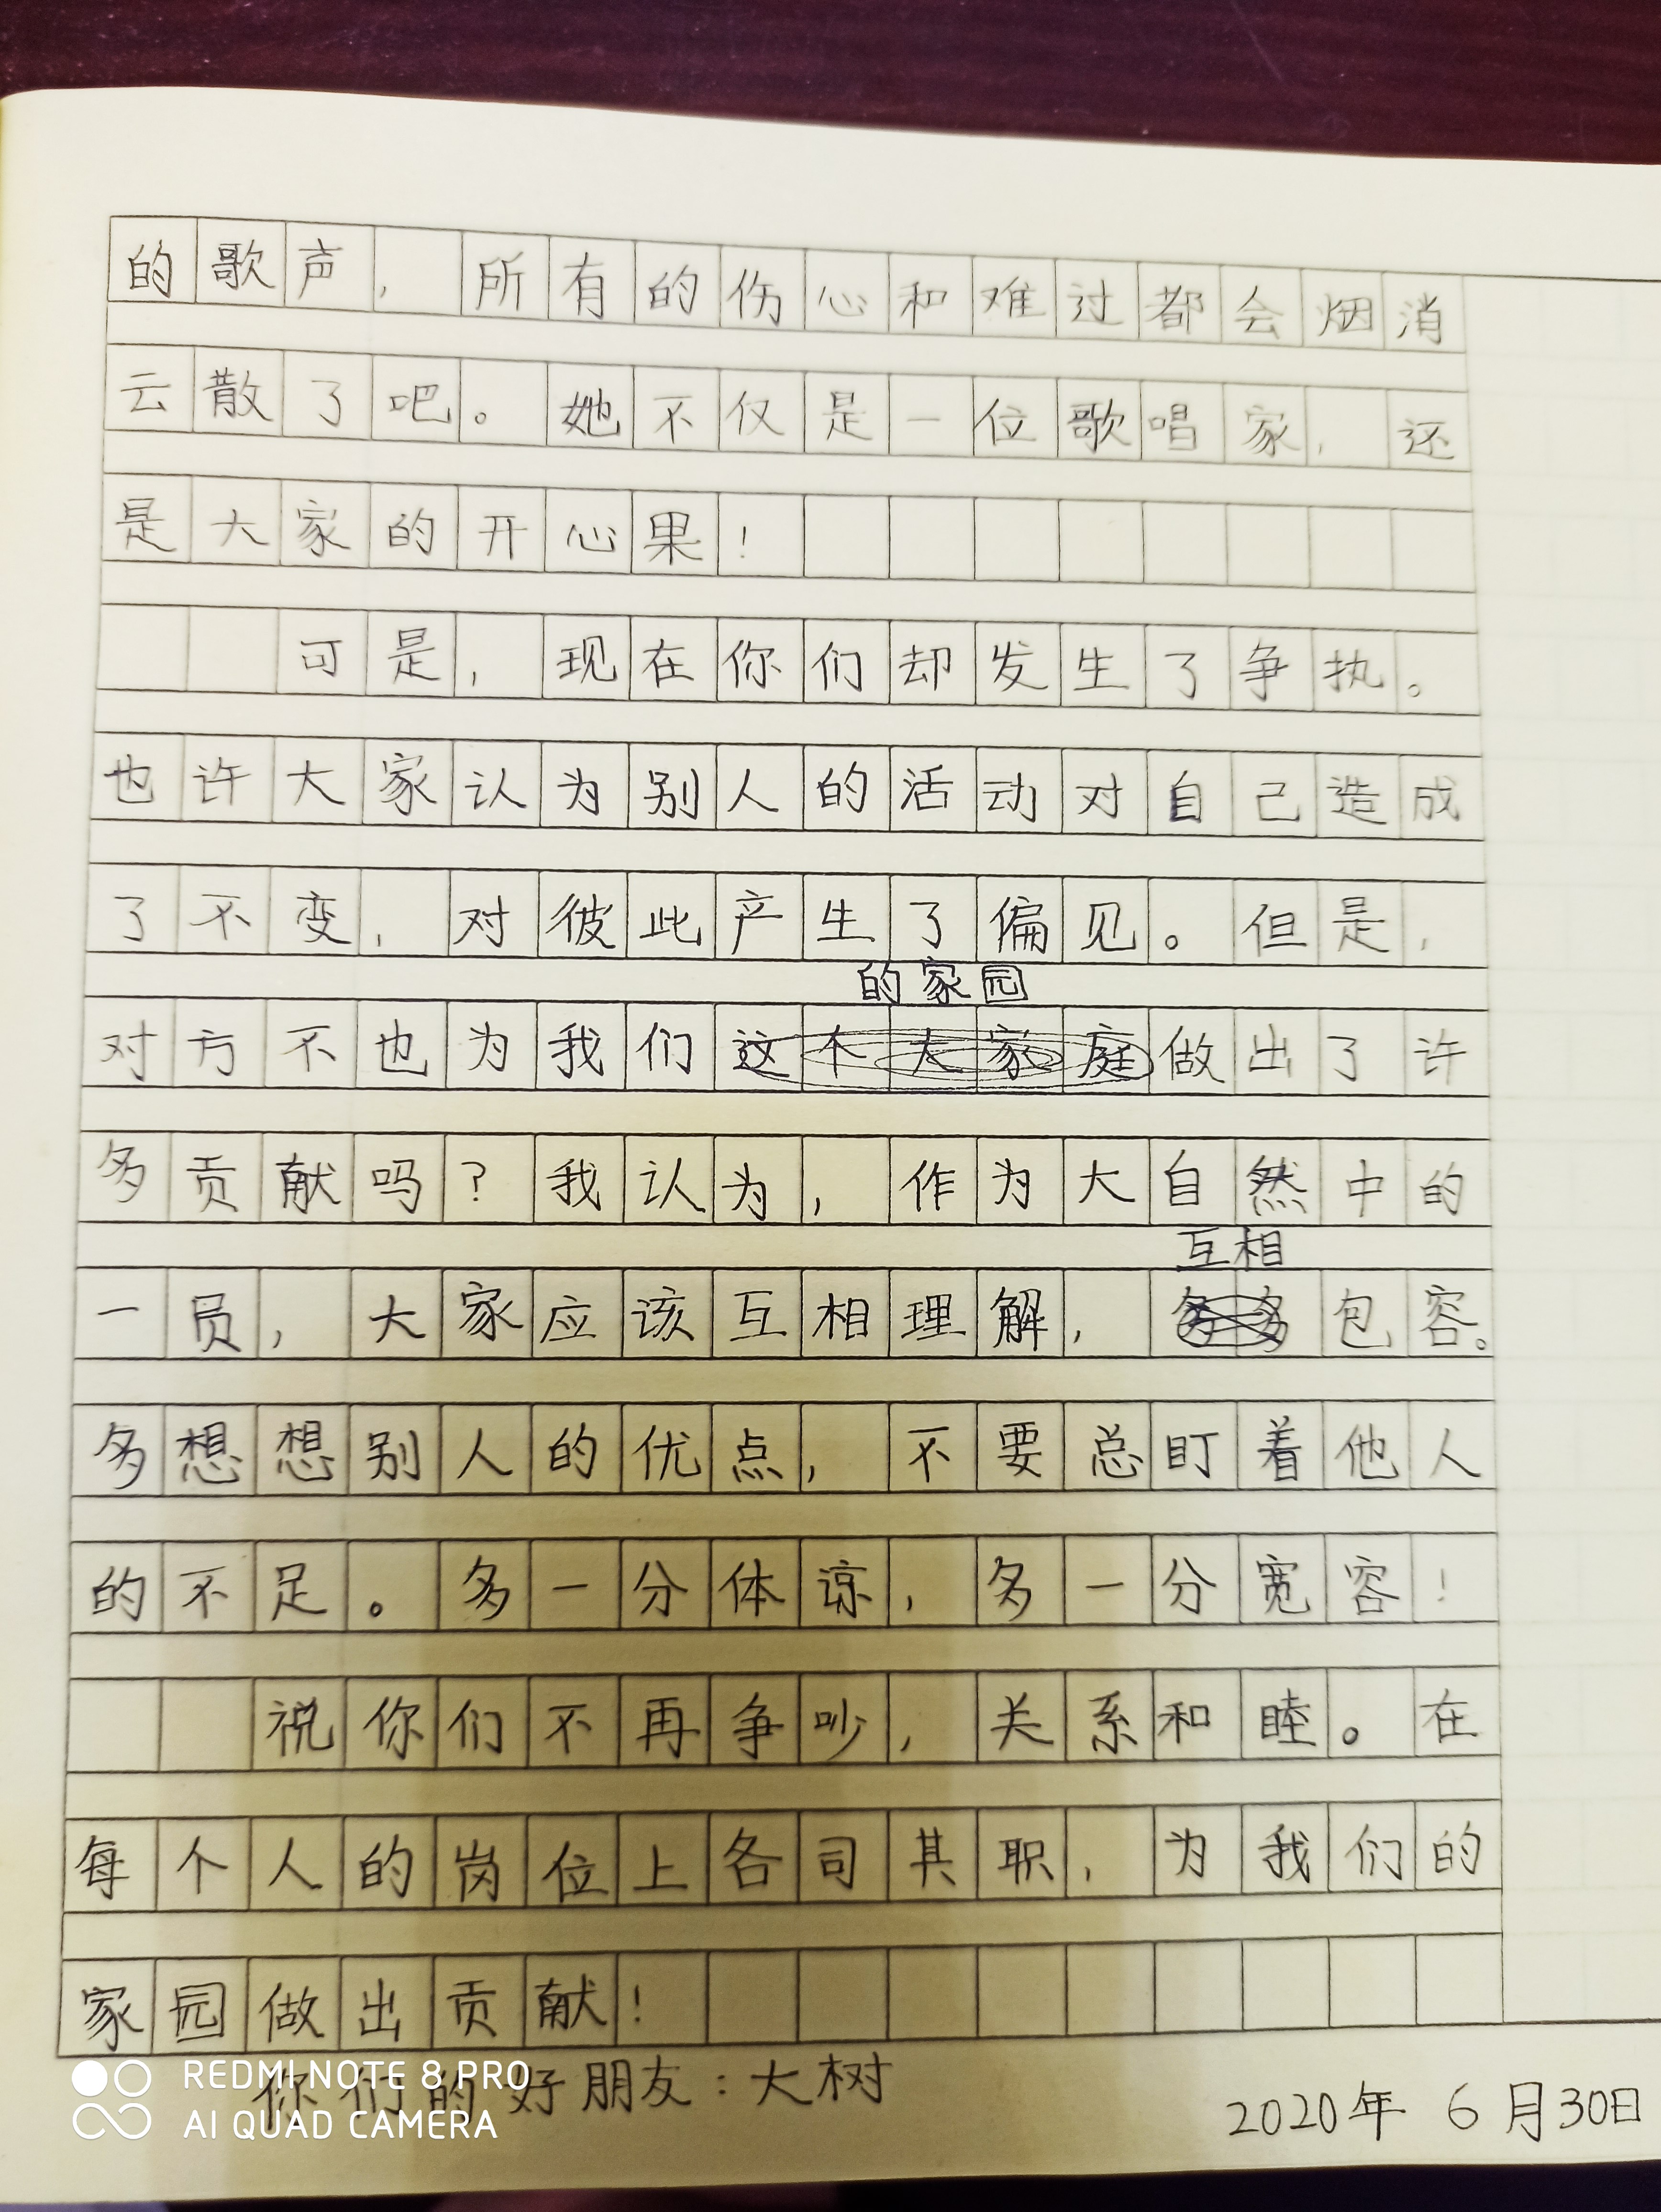 的歌声，所有的伤心和难过都会烟消
云散了吧。她不仅是一位歌唱家，还
是大家的开心果！
可是，现在你们却发生了争执。
也许大家认为别人的活动对自己造成
了不变，对彼此产生了偏见。但是，
的家园
对方不也为我们这个大家庭做出了许
多贡献吗？我认为，作为大自然中的
互相
一员，大家应该互相理解，多多包容。
多想想别人的优点，不要总盯着他人
的不足。多一分体谅，多一分宽容！
祝你们不再争吵，关系和睦。在
每个人的岗位上各司其职，为我们的
家园做出贡献！
你们的好朋友：大树
2020年 6月30日
REDMI NOTE 8 PRO
AI QUAD CAMERA